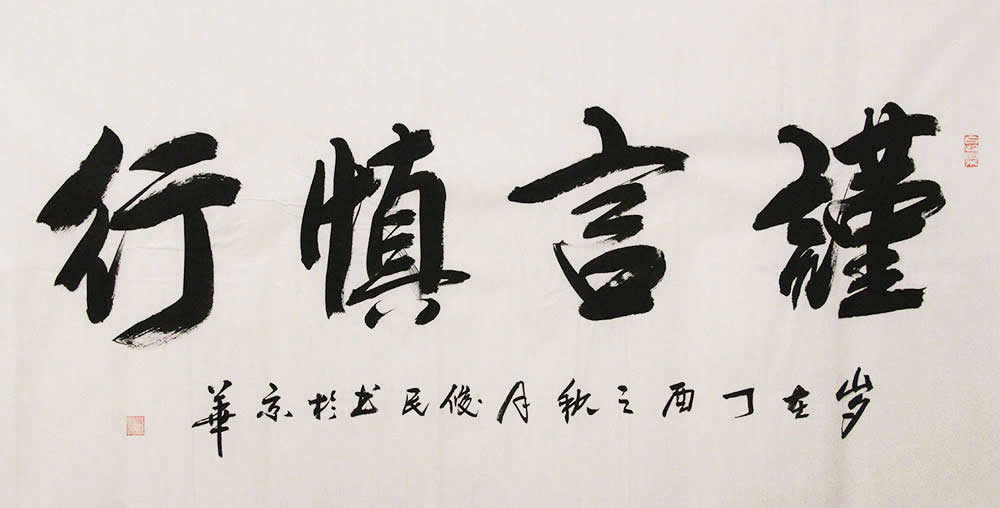 謹言慎行
岁在丁酉之秋月俊民书於京華